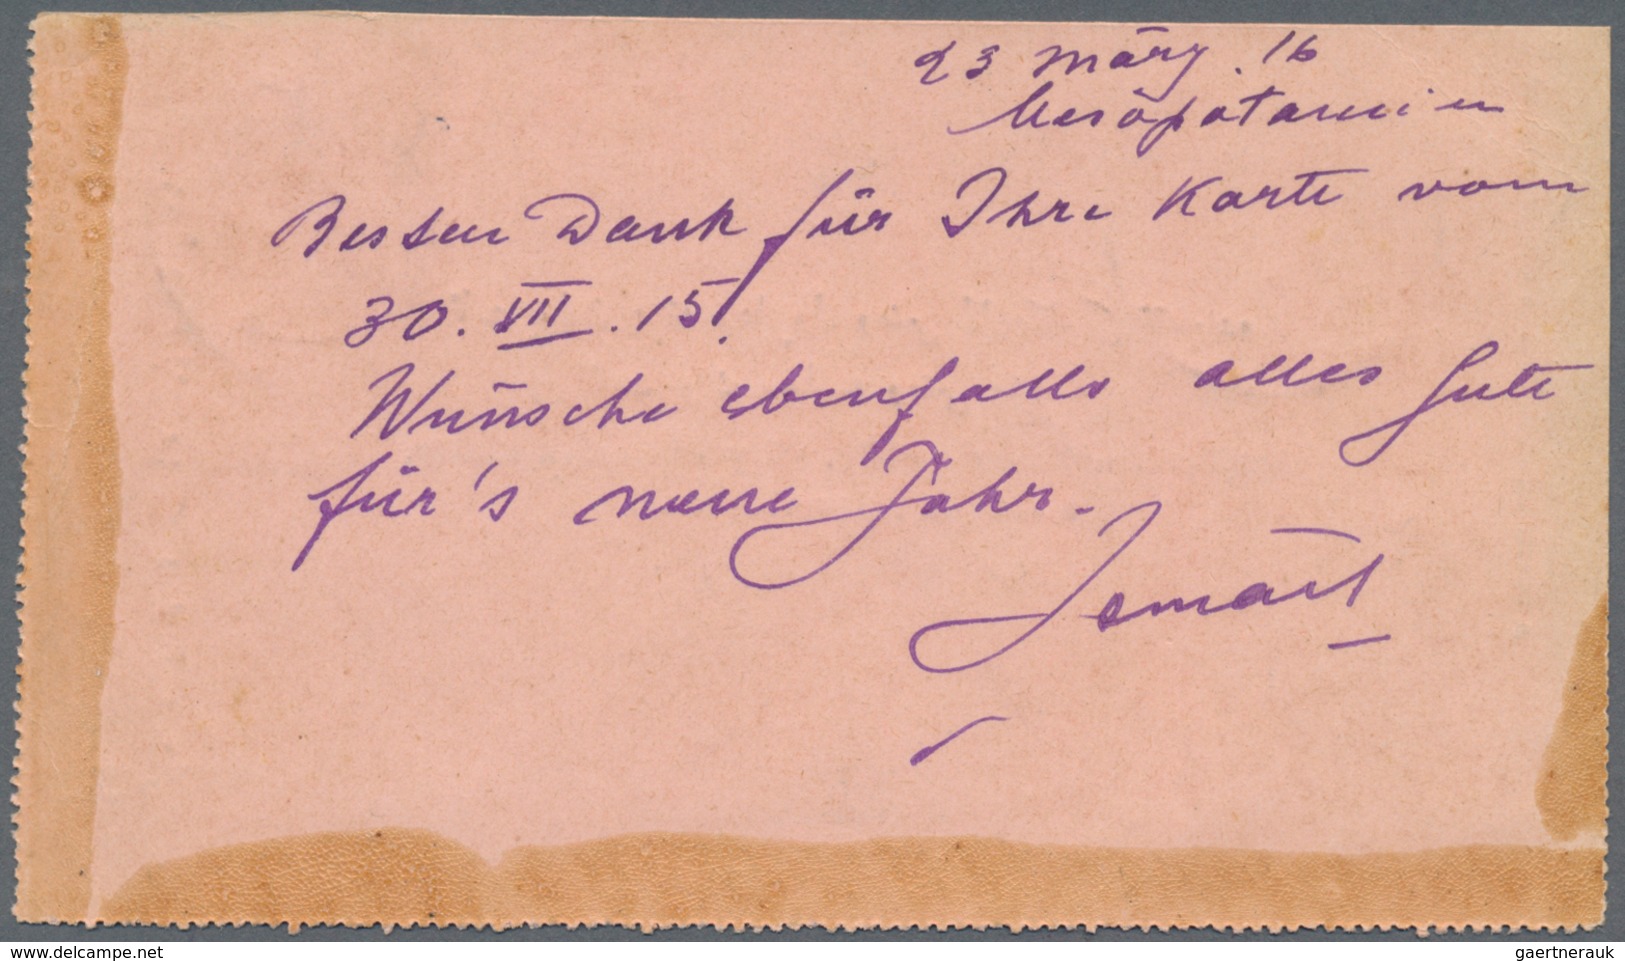 23 März . 16
Mesopotamien
Besten Dank für Ihre Karte vom
30. VII . 15.
Wünsche ebenfalls alles Gute
für's neue Jahr.
delcampe.net
gaertnerauk